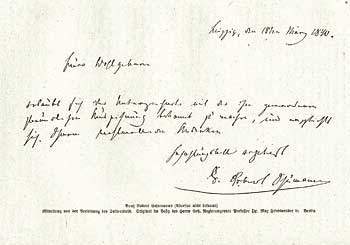 Leipzig, den 18ten März 1840.
Euer Wohlgeboren
erlaubt sich der Unterzeichnete mit der ihm gewordenen
bekannt zu machen, und empfiehlt
sich Ihrem wohlwollenden Andenken
Hochachtungsvoll ergebenst
Dr. Robert Schumann
Brief Robert Schumanns (Adressat nicht bekannt)
Mitteilung von der Verleihung des Doktortitels. Original im Besitz des Herrn Geh. Regierungsrats Professor Dr. Max Friedlaender in Berlin